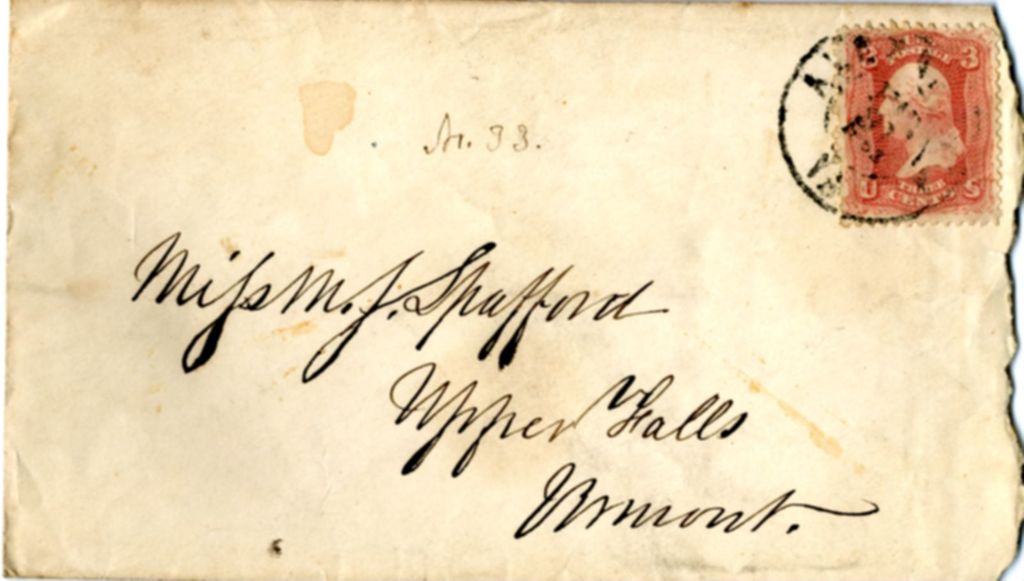 No. 33.
3 3
U S
THREE
CENTS
Miss M. J. Spafford
Upper Falls
Vermont.